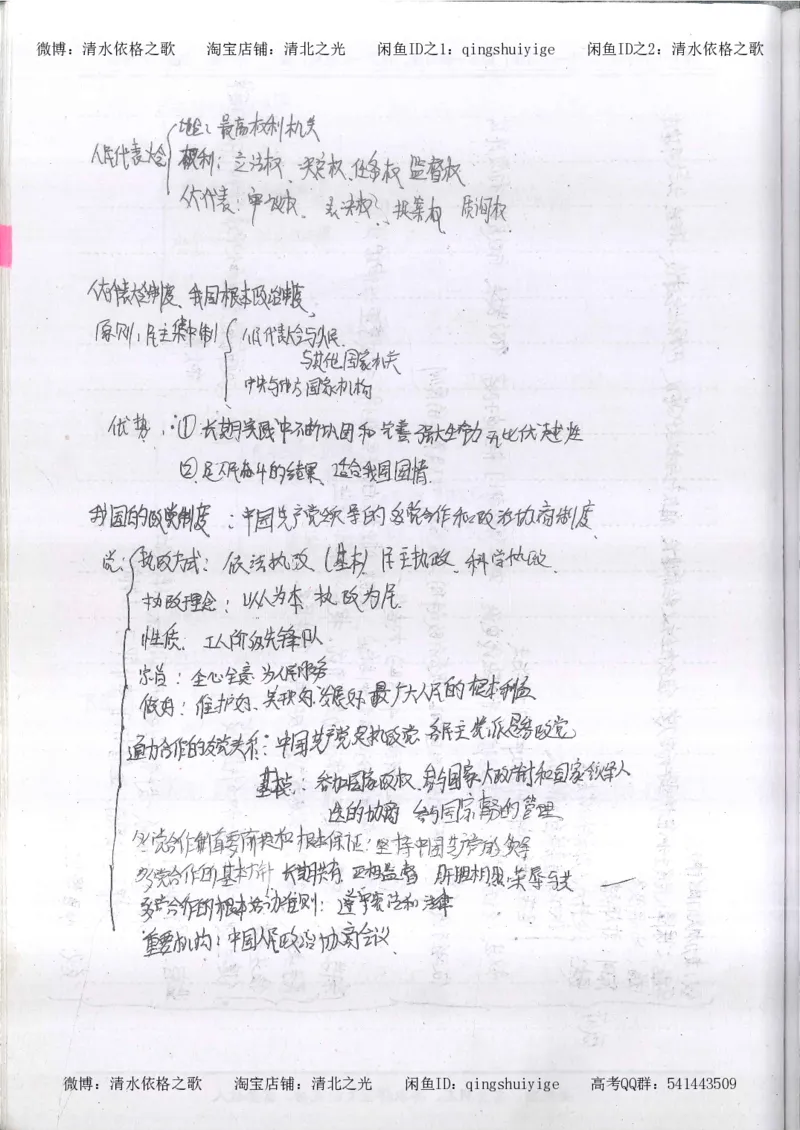 微博：清水依格之歌 淘宝店铺：清北之光 闲鱼ID之1：qingshuiyige 闲鱼ID之2：清水依格之歌
地位：最高权利机关
人民代表大会 权利：立法权、决定权、任免权、监督权
人大代表：审议权、表决权、提案权 质询权
人大代表大会制度、我国根本政治制度
原则：民主集中制 人民代表大会与人民
与其他国家机关
中央与地方国家机构
优势：①长期实践中不断巩固和完善 强大生命力 无比优越性
②是人民奋斗的结果、适合我国国情
我国的政党制度：中国共产党领导的多党合作和政治协商制度
党：执政方式：依法执政（基本）民主执政、科学执政
执政理念：以人为本 执政为民
性质：工人阶级先锋队
宗旨：全心全意为人民服务
做好：维护好、实现好、发展好最广大人民的根本利益
通力合作的友党关系：中国共产党是执政党 各民主党派是参政党
基本点：参加国家政权、参与国家大政方针和国家领导人
选的协商 参与国家事务的管理
多党合作制首要前提和根本保证：坚持中国共产党的领导
多党合作的基本方针 长期共存 互相监督 肝胆相照 荣辱与共
多党合作的根本活动准则：遵守宪法和法律
重要机构：中国人民政治协商会议
微博：清水依格之歌 淘宝店铺：清北之光 闲鱼ID：qingshuiyige 高考QQ群：541443509